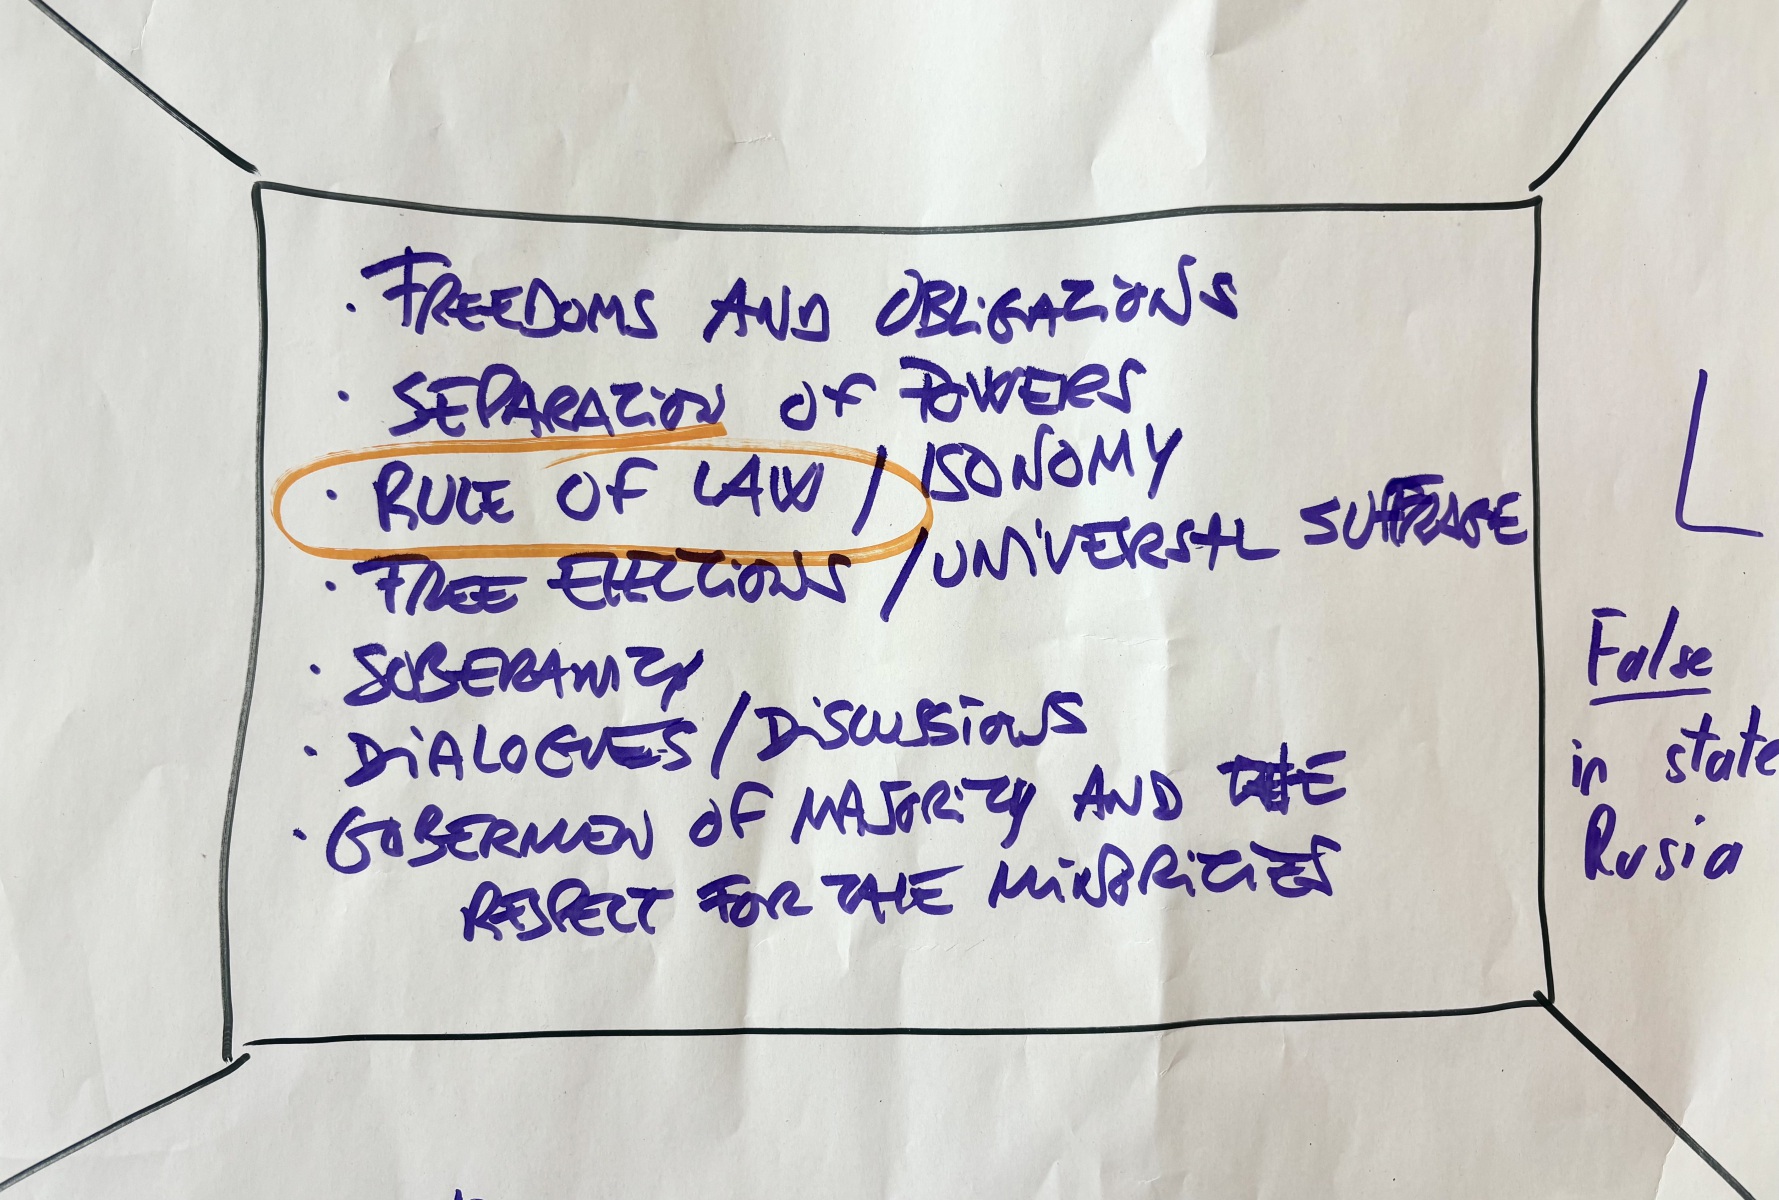 · FREEDOMS AND OBLIGATIONS
· SEPARATION OF POWERS
· RULE OF LAW / ISONOMY
· FREE ELECTIONS / UNIVERSAL SUFFRAGE
· SOBERANITY
· DIALOGUES / DISCUSSIONS
· GOBERMEN OF MAJORITY AND THE
RESPECT FOR THE MINORITIES
L
False
in state
Rusia